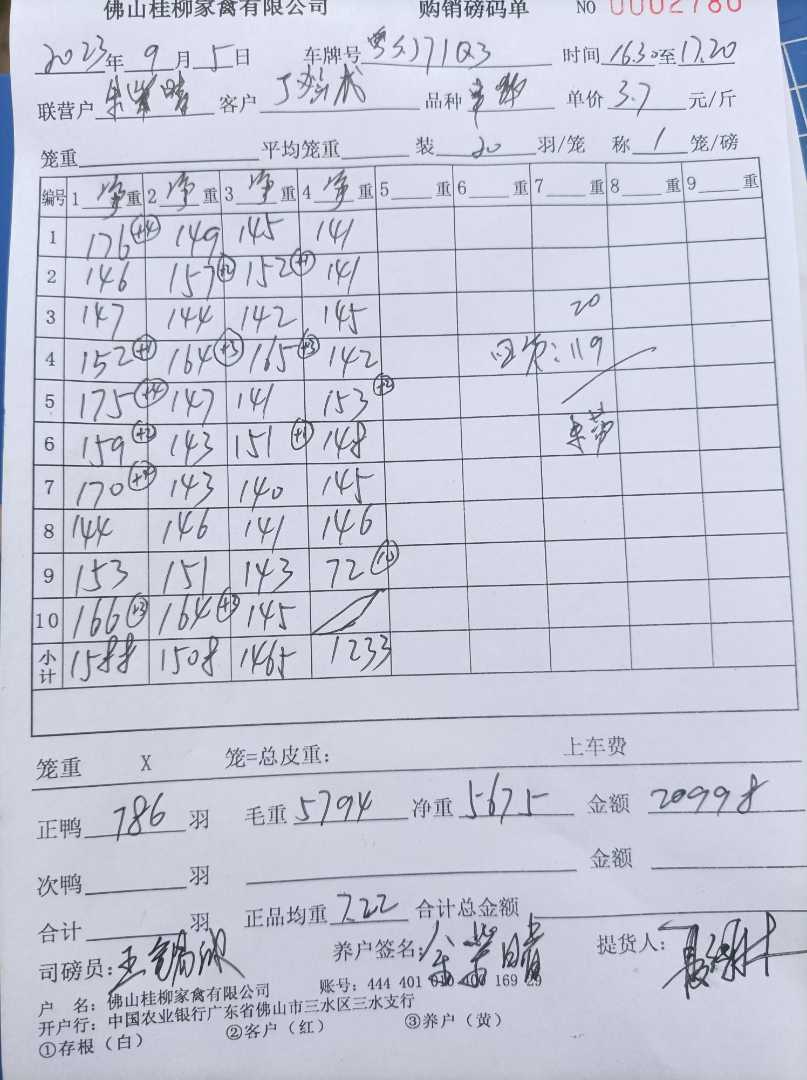 佛山桂柳家禽有限公司 购销磅码单 NO 0002780
2023年 9 月 5 日 车牌号 粤 171Q3 时间 16.30至17.20
联营户 客户 品种 单价 3.7 元/斤
笼重 平均笼重 装 20 羽/笼 称 1 笼/磅
编号 1 净 重 2 净 重 3 净 重 4 净 重 5 重 6 重 7 重 8 重 9 重
1 176 +4 149 145 141
2 146 157 +2 152 +1 141
3 147 144 142 145 20
4 152 +1 164 +3 165 +3 142 :119
5 175 +4 147 141 153 +2
6 159 +2 143 151 +1 148
7 170 +4 143 140 145
8 144 146 141 146
9 153 151 143 72
10 166 +3 164 +3 145
小计 1588 1508 1465 1233
笼重 X 笼=总皮重: 上车费
正鸭 786 羽 毛重 5794 净重 5675 金额 20998
次鸭 羽 金额
合计 羽 正品均重 7.22 合计总金额
司磅员: 养户签名: 提货人:
户 名: 佛山桂柳家禽有限公司 账号: 444 401 010 400 169 29
开户行: 中国农业银行广东省佛山市三水区三水支行
①存根(白) ②客户(红) ③养户(黄)